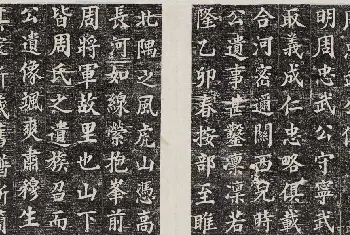 明周忠武公守寧武
取義成仁忠略俱載
合河密邇關西兒時
公遺事甚鑿凜凜若
隆乙卯春按部至睢
北隅之風虎山憑高
長河如線縈抱峯前
周將軍故里也山下
皆周氏之遺族召而
公遺像颯爽肅穆生